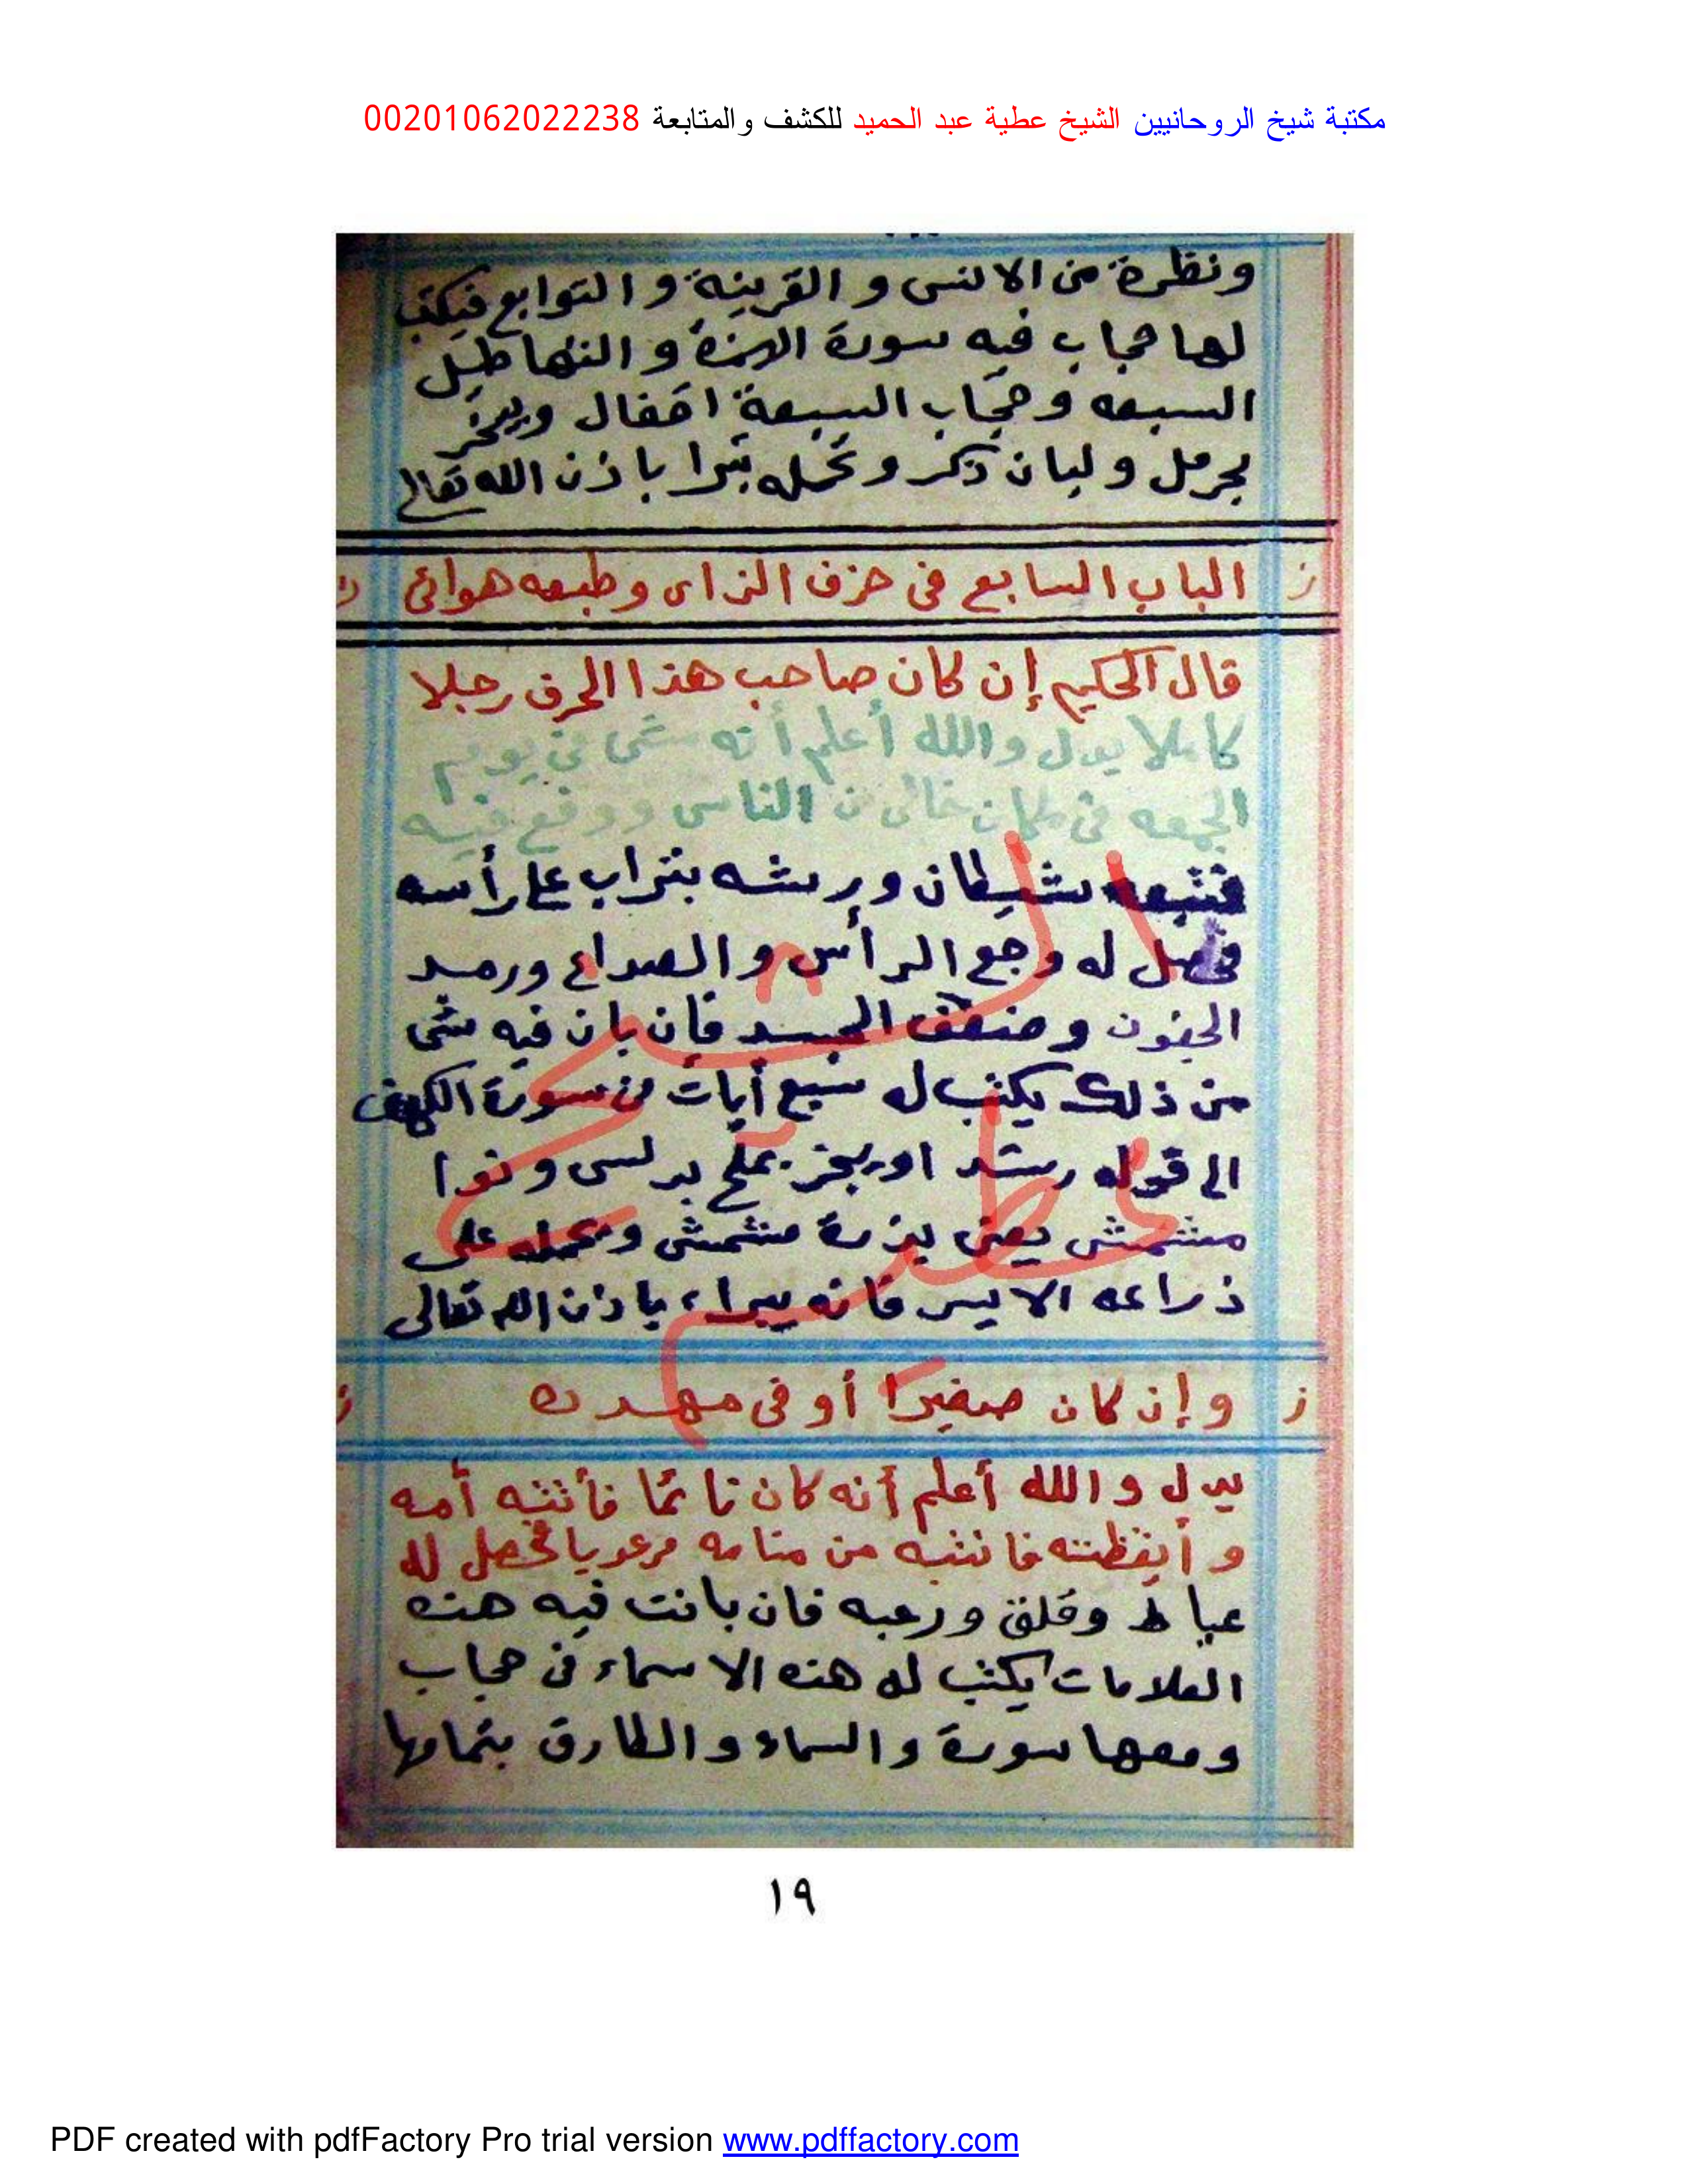 مكتبة شيخ الروحانيين الشيخ عطية عبد الحميد للكشف والمتابعة 00201062022238
ونظرة من الانس و القرينة و التوابع فيكتب
لها حجاب فيه سورة الهمزة و الشهاطيل
السبعه و حجاب السبعة اقفال ويبخر
بحرمل و لبان ذكر و تحمله تبرا باذن الله تعالى
ز الباب السابع فى حزف الزاى وطبعه هوائى ز
قال الحكيم إن كان صاحب هذا الحرف رجلا
كاملا يدل والله أعلم أنه مشى فى يوم
الجمعه فى مكان خالى من الناس ووقع فيه
فتبعه شيطان ورشه بتراب على رأسه
فحصل له وجع الرأس و الصداع ورمد
الجفون و ضعف الجسد فإن بان فيه شى
من ذلك يكتب له سبع أيات من سورة الكهف
الى قوله رشدا ويبخر بملح برلسى و نوا
مشمش يعنى بذرة مشمش ويحمله على
ذراعه الايسر فانه يبراء باذن الله تعالى
ز وإن كان صغيرا أو فى مهده ز
يدل و الله أعلم أنه كان نائما فأتته أمه
و أيقظته فانتبه من منامه مرعوبا فحصل له
عياط وقلق ورعبه فان بانت فيه هذه
العلامات يكتب له هذه الاسماء فى حجاب
ومعها سورة والسماء والطارق بتمامها
الشيخ
عطيه
١٩
PDF created with pdfFactory Pro trial version www.pdffactory.com